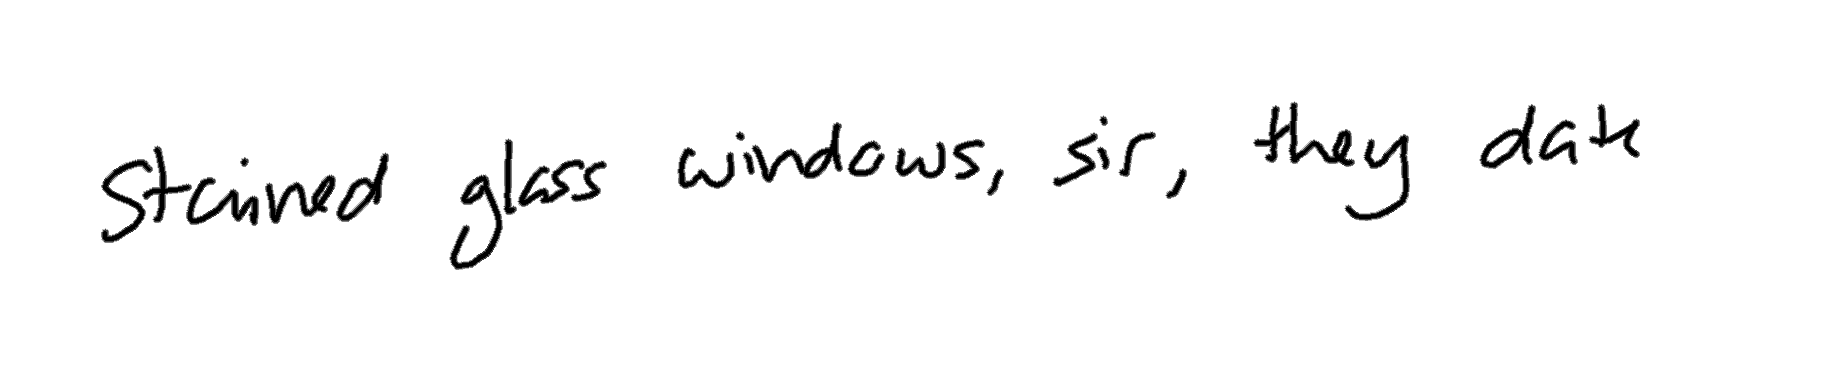 Stained glass windows, sir, they date